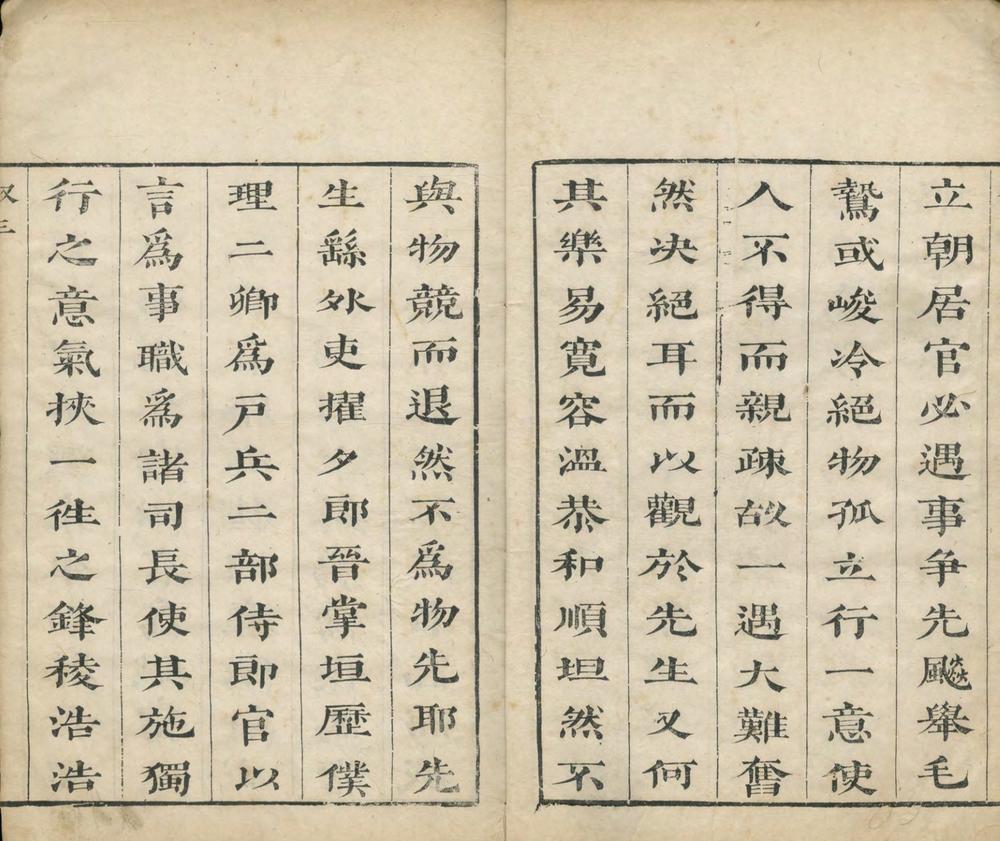 立朝居官必遇事争先飈舉毛
鷙或峻冷絕物孤立行一意使
人不得而親疎故一遇大難奮
然決絕耳而以觀於先生又何
其樂易寬容溫恭和順坦然不
與物競而退然不爲物先耶先
生繇外吏擢夕郎晉掌垣歷僕
理二卿爲戸兵二部侍郎官以
言爲事職爲諸司長使其施獨
行之意氣挾一徃之鋒稜浩浩